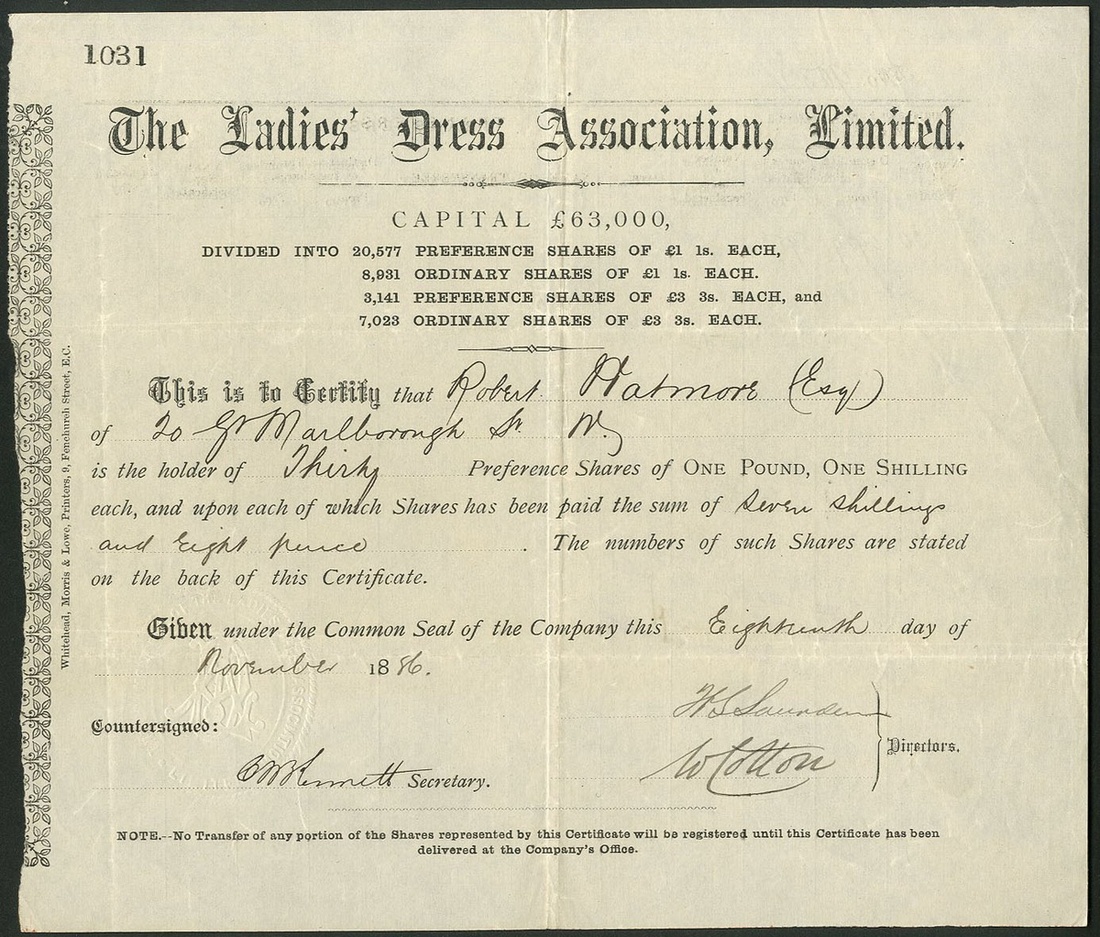 1031
The Ladies' Dress Association, Limited.
CAPITAL £63,000,
DIVIDED INTO 20,577 PREFERENCE SHARES OF £1 1s. EACH,
8,931 ORDINARY SHARES OF £1 1s. EACH.
3,141 PREFERENCE SHARES OF £3 3s. EACH, and
7,023 ORDINARY SHARES OF £3 3s. EACH.
This is to Certify that Robert Hatmore (Esq)
of 20 Gt Marlborough St W.
is the holder of Thirty Preference Shares of ONE POUND, ONE SHILLING
each, and upon each of which Shares has been paid the sum of Seven Shillings
and Eight pence . The numbers of such Shares are stated
on the back of this Certificate.
Given under the Common Seal of the Company this Eighteenth day of
November 1886.
Countersigned:
Secretary.
W Cotton
Directors.
NOTE.--No Transfer of any portion of the Shares represented by this Certificate will be registered until this Certificate has been
delivered at the Company's Office.
Whitehead, Morris & Lowe, Printers, 9, Fenchurch Street, E.C.